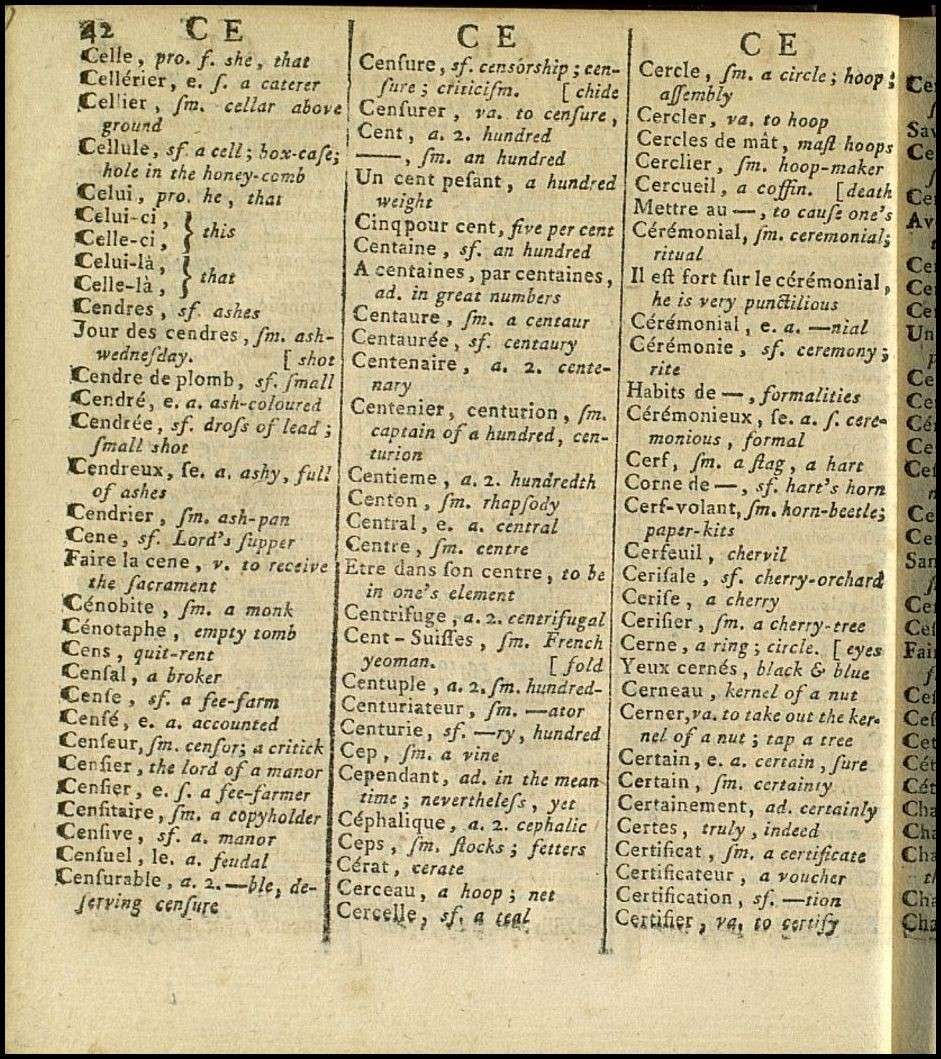 42 C E
Celle, pro. f. she, that
Cellérier, e. ſ. a caterer
Cellier, ſm. cellar above
ground
Cellule, sf. a cell; box-caſe;
hole in the honey-comb
Celui, pro. he, that
Celui-ci, } this
Celle-ci,
Celui-là, } that
Celle-là,
Cendres, sf. ashes
Jour des cendres, ſm. ash-
wedneſday. [ shot
Cendre de plomb, sf. ſmall
Cendré, e. a. ash-coloured
Cendrée, sf. droſs of lead;
ſmall shot
Cendreux, ſe. a. ashy, full
of ashes
Cendrier, ſm. ash-pan
Cene, sf. Lord's ſupper
Faire la cene, v. to receive
the ſacrament
Cénobite, ſm. a monk
Cénotaphe, empty tomb
Cens, quit-rent
Cenſal, a broker
Cenſe, sf. a fee-farm
Cenſé, e. a. accounted
Cenſeur, ſm. cenſor; a critick
Cenſier, the lord of a manor
Cenſier, e. ſ. a fee-farmer
Cenſitaire, ſm. a copyholder
Cenſive, sf. a. manor
Cenſuel, le. a. feudal
Cenſurable, a. 2. —ble, de-
ſerving cenſure
C E
Cenſure, sf. censorship; cen-
ſure; criticiſm. [ chide
Cenſurer, va. to cenſure,
Cent, a. 2. hundred
——, ſm. an hundred
Un cent peſant, a hundred
weight
Cinq pour cent, five per cent
Centaine, sf. an hundred
A centaines, par centaines,
ad. in great numbers
Centaure, ſm. a centaur
Centaurée, sf. centaury
Centenaire, a. 2. cente-
nary
Centenier, centurion, ſm.
captain of a hundred, cen-
turion
Centieme, a. 2. hundredth
Centon, ſm. rhapſody
Central, e. a. central
Centre, ſm. centre
Etre dans ſon centre, to be
in one's element
Centrifuge, a. 2. centrifugal
Cent-Suiſſes, ſm. French
yeoman. [ fold
Centuple, a. 2. ſm. hundred-
Centuriateur, ſm. —ator
Centurie, sf. —ry, hundred
Cep, ſm. a vine
Cependant, ad. in the mean
time; nevertheleſs, yet
Céphalique, a. 2. cephalic
Ceps, ſm. ſtocks; fetters
Cérat, cerate
Cerceau, a hoop; net
Cercelle, sf. a teal
C E
Cercle, ſm. a circle; hoop;
aſſembly
Cercler, va. to hoop
Cercles de mât, maſt hoops
Cerclier, ſm. hoop-maker
Cercueil, a coffin. [death
Mettre au —, to cauſe one's
Cérémonial, ſm. ceremonial;
ritual
Il eſt fort ſur le cérémonial,
he is very punctilious
Cérémonial, e. a. —nial
Cérémonie, sf. ceremony;
rite
Habits de —, formalities
Cérémonieux, ſe. a. ſ. cere-
monious, formal
Cerf, ſm. a ſtag, a hart
Corne de —, sf. hart's horn
Cerf-volant, ſm. horn-beetle;
paper-kits
Cerfeuil, chervil
Ceriſale, sf. cherry-orchard
Ceriſe, a cherry
Ceriſier, ſm. a cherry-tree
Cerne, a ring; circle. [ eyes
Yeux cernés, black & blue
Cerneau, kernel of a nut
Cerner, va. to take out the ker-
nel of a nut; tap a tree
Certain, e. a. certain, ſure
Certain, ſm. certainty
Certainement, ad. certainly
Certes, truly, indeed
Certificat, ſm. a certificate
Certificateur, a voucher
Certification, sf. —tion
Certifier, va. to certify